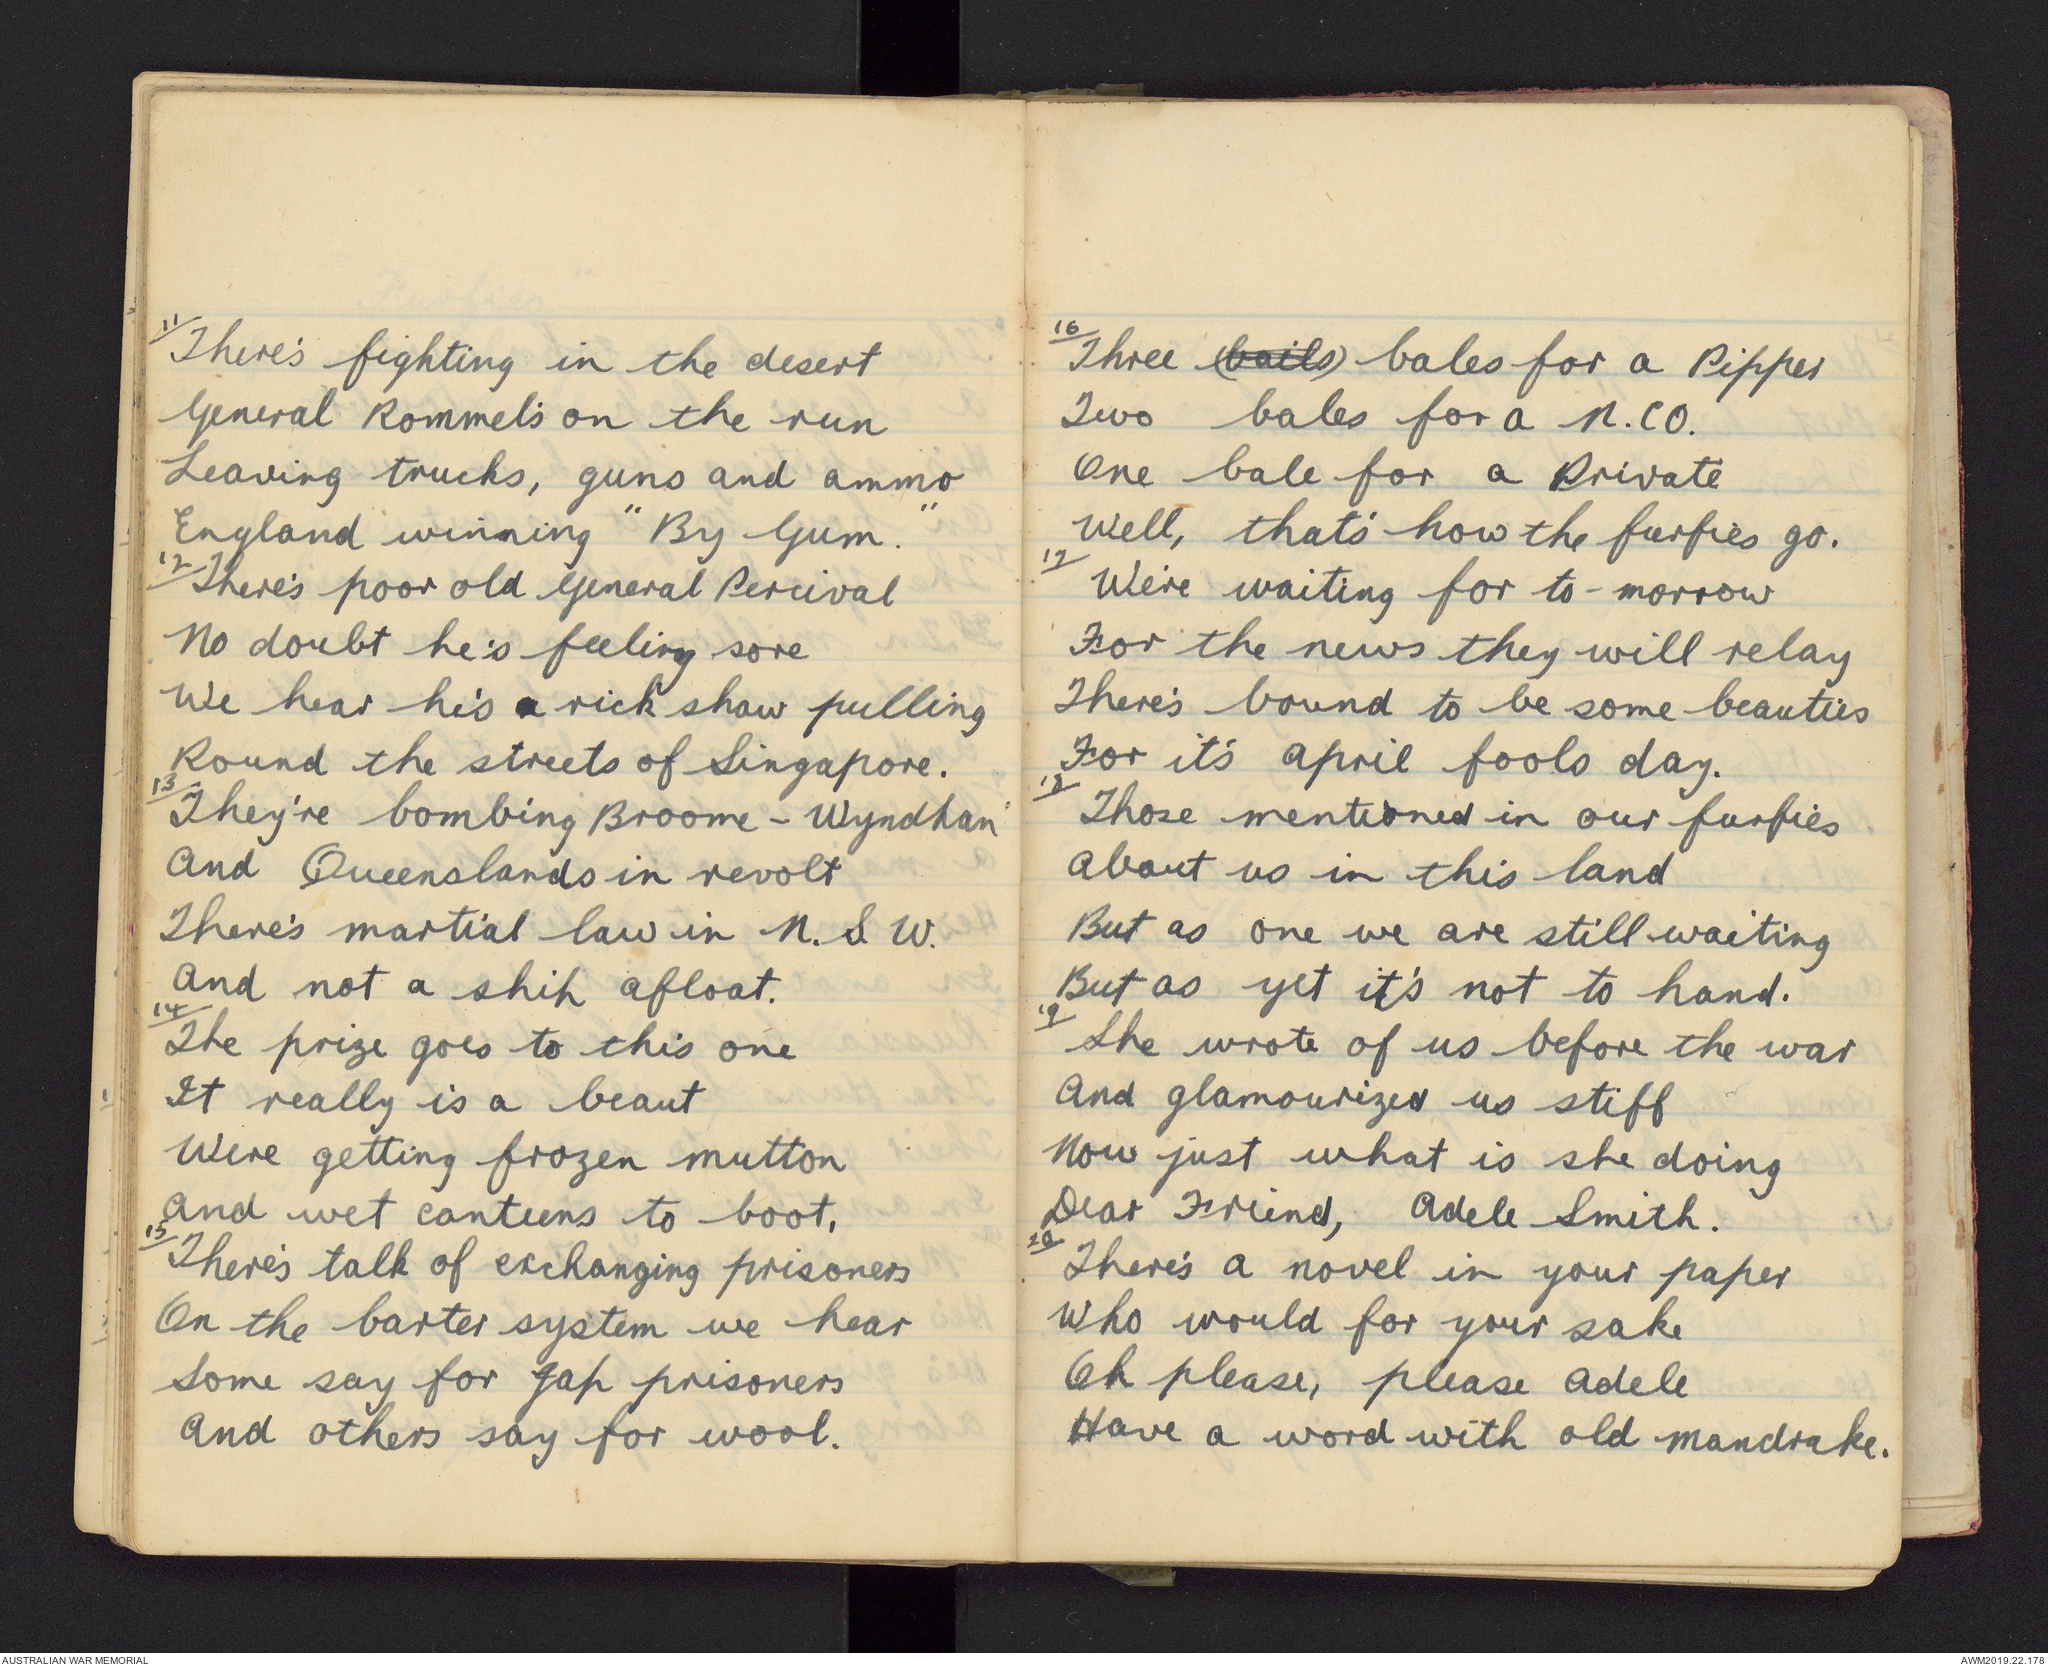 11/
There's fighting in the desert
General Rommel's on the run
Leaving trucks, guns and ammo
England winning "By Gum."
12/
There's poor old General Percival
No doubt he's feeling sore
We hear he's a rick shaw pulling
Round the streets of Singapore.
13/
They're bombing Broome - Wyndhan
And Queenslands in revolt
There's martial law in N.S.W.
And not a ship afloat.
14/
The prize goes to this one
It really is a beaut
We're getting frozen mutton
And wet canteens to boot.
15/
There's talk of exchanging prisoners
On the barter system we hear
Some say for Jap prisoners
And others say for wool.
16/
Three (bails) bales for a Pipper
Two bales for a N.CO.
One bale for a Private
Well, that's how the furfies go.
17/
We're waiting for to-morrow
For the news they will relay
There's bound to be some beauties
For it's april fools day.
18/
Those mentioned in our furfies
About us in this land
But as one we are still waiting
But as yet it's not to hand.
19/
She wrote of us before the war
And glamourized us stiff
Now just what is she doing
Dear Friend, Adele Smith.
20/
There's a novel in your paper
Who would for your sake
Oh please, please Adele
Have a word with old mandrake.
AUSTRALIAN WAR MEMORIAL
AWM2019.22.178